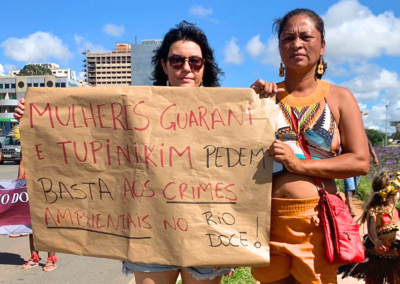 MULHERES GUARANI
E TUPINIKIM PEDEM
BASTA AOS CRIMES
AMBIENTAIS NO RIO
DOCE!